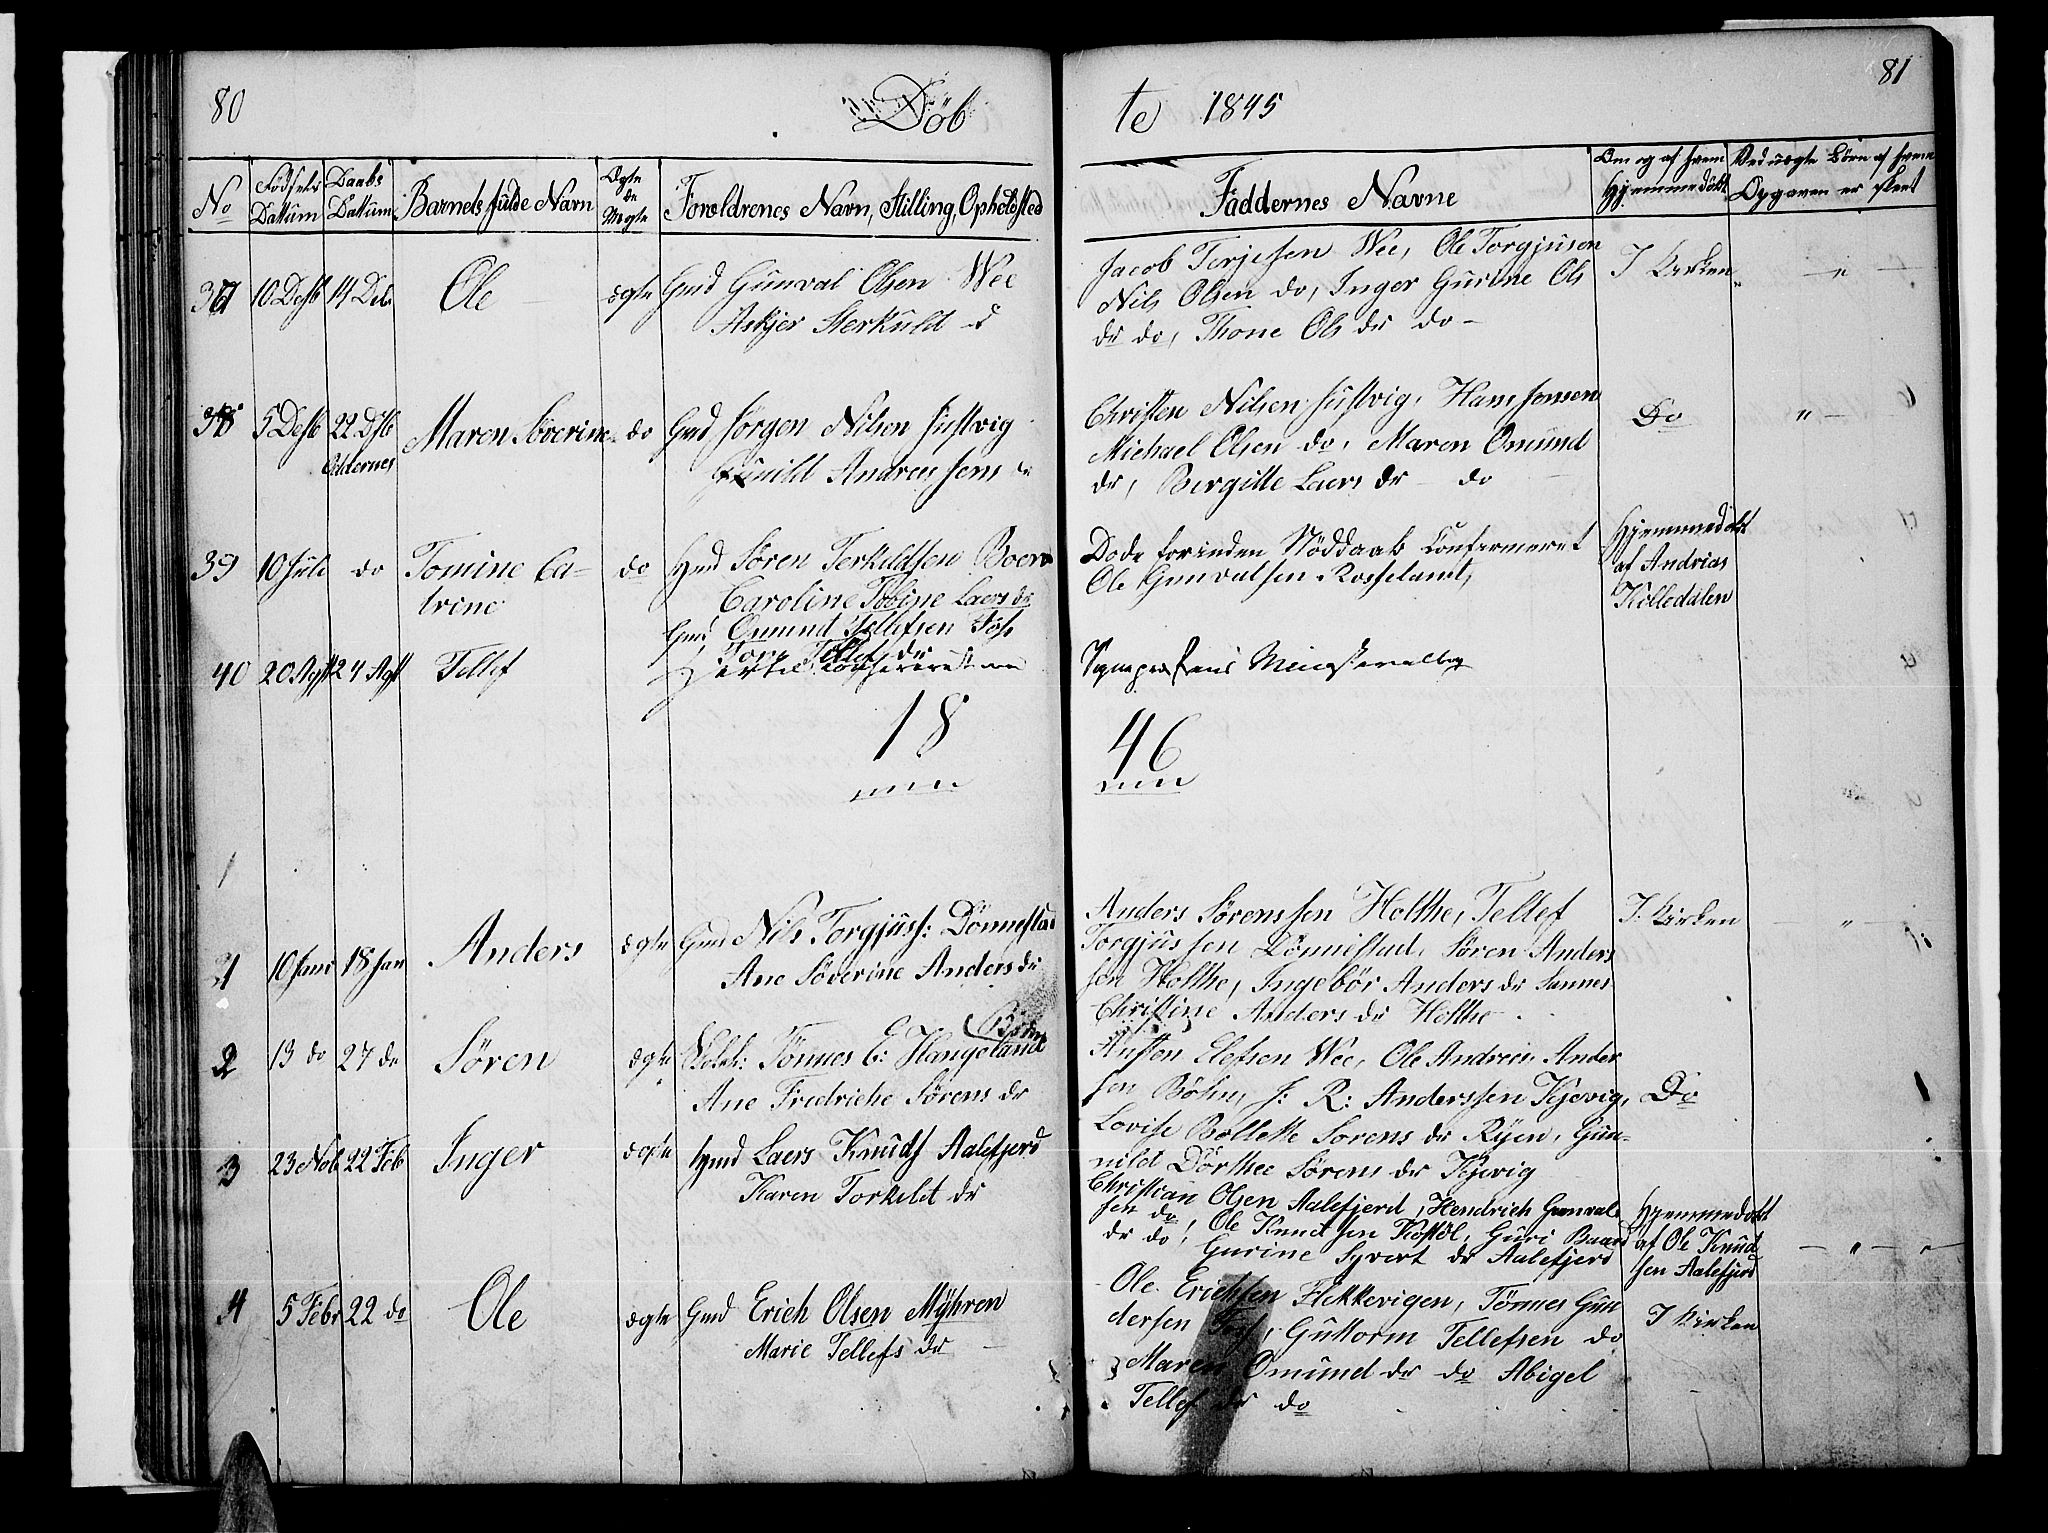 80
Döb
te 1845
81
No
Födsels Dattum
Daabs Dattum
Barnets fulde Navn
Ægte de Uægte
Foreldrenes Navn, Stilling, Opholdsted
Faddernes Navne
Om og af hvem Hjemmedöbt
Ved uægte Börn af hvem Opgaven er skeet
37 10 Desb 14 Des Ole ægte Gmd Gunval Olsen Wee
Askjer Sterkuld d
Jacob Terjesen Wee, Ole Torgjusen
Nils Olsen do, Inger Gurine Ols
dr do, Thone Ols dr do
I Kirken
38 5 Desb 22 Dsb Oddernes Maren Söverine do Gmd Jorgen Nilsen Justvig
Gunild Andreas sens
Christen Nilsen Justvig, Hans Jensen
Michael Olsen do, Maren Omund
dr, Bergitte Laers dr do
Do
39 10 Juli do Tomine Ca-
trine
do Hmd Sören Terkildsen Boen
Caroline Tobine Laers dr
Dode forinden Nöddaab Confermeret
Ole Gunvalsen Rosseland,
Hjemmedöbt
af Andrias
Killedalen
Gmd Omund Tellefsen Fos
40 20 Agst 24 Agst Tellef
Tone Tellef dr
18
46
1
1 10 Janr 18 Jan Anders ægte Gmd Nils Torgjuss: Dönnestad
Ane Söverine Anders dr
Anders Sörenssen Holthe, Tellef
Torgjussen Dönnestad, Sören Anders
sen Holthe, Ingebör Anders dr Sannes
Christine Anders dr Holthe
I Kirken
2 13 do 27 do Sören ægte Tönnes E: Haugeland
Ane Fredriche Sörens dr
Austen Elefsen Wee, Ole Andreas Ander
sen Böhn, J: R: Anderssen Kjevig,
Lovise Bollette Sorens dr Ryen, Gun-
nild Dorthee Sörens dr Kjevig
Do
3 23 Nob 22 Feb Inger ægte Hmd Laers Knuds Aalefjerd
Karen Torkild dr
Christian Olsen Aalefjerd, Hendrich Gunvals
sen do, Ole Knudsen Kostöl, Guri Baard
dr do, Gurine Syvert dr Aalefjerd
Hjemmedöbt
af Ole Knud
sen Aalefjerd
4 5 Febr 22 do Ole ægte Gmd Erich Olsen Mÿhren
Marie Tellefs dr
Ole Erichsen Flekkevigen, Tönnes Gun
dersen Fos, Guttorm Tellefsen do
Maren Omund dr do Abigel
Tellef dr do
I Kirken